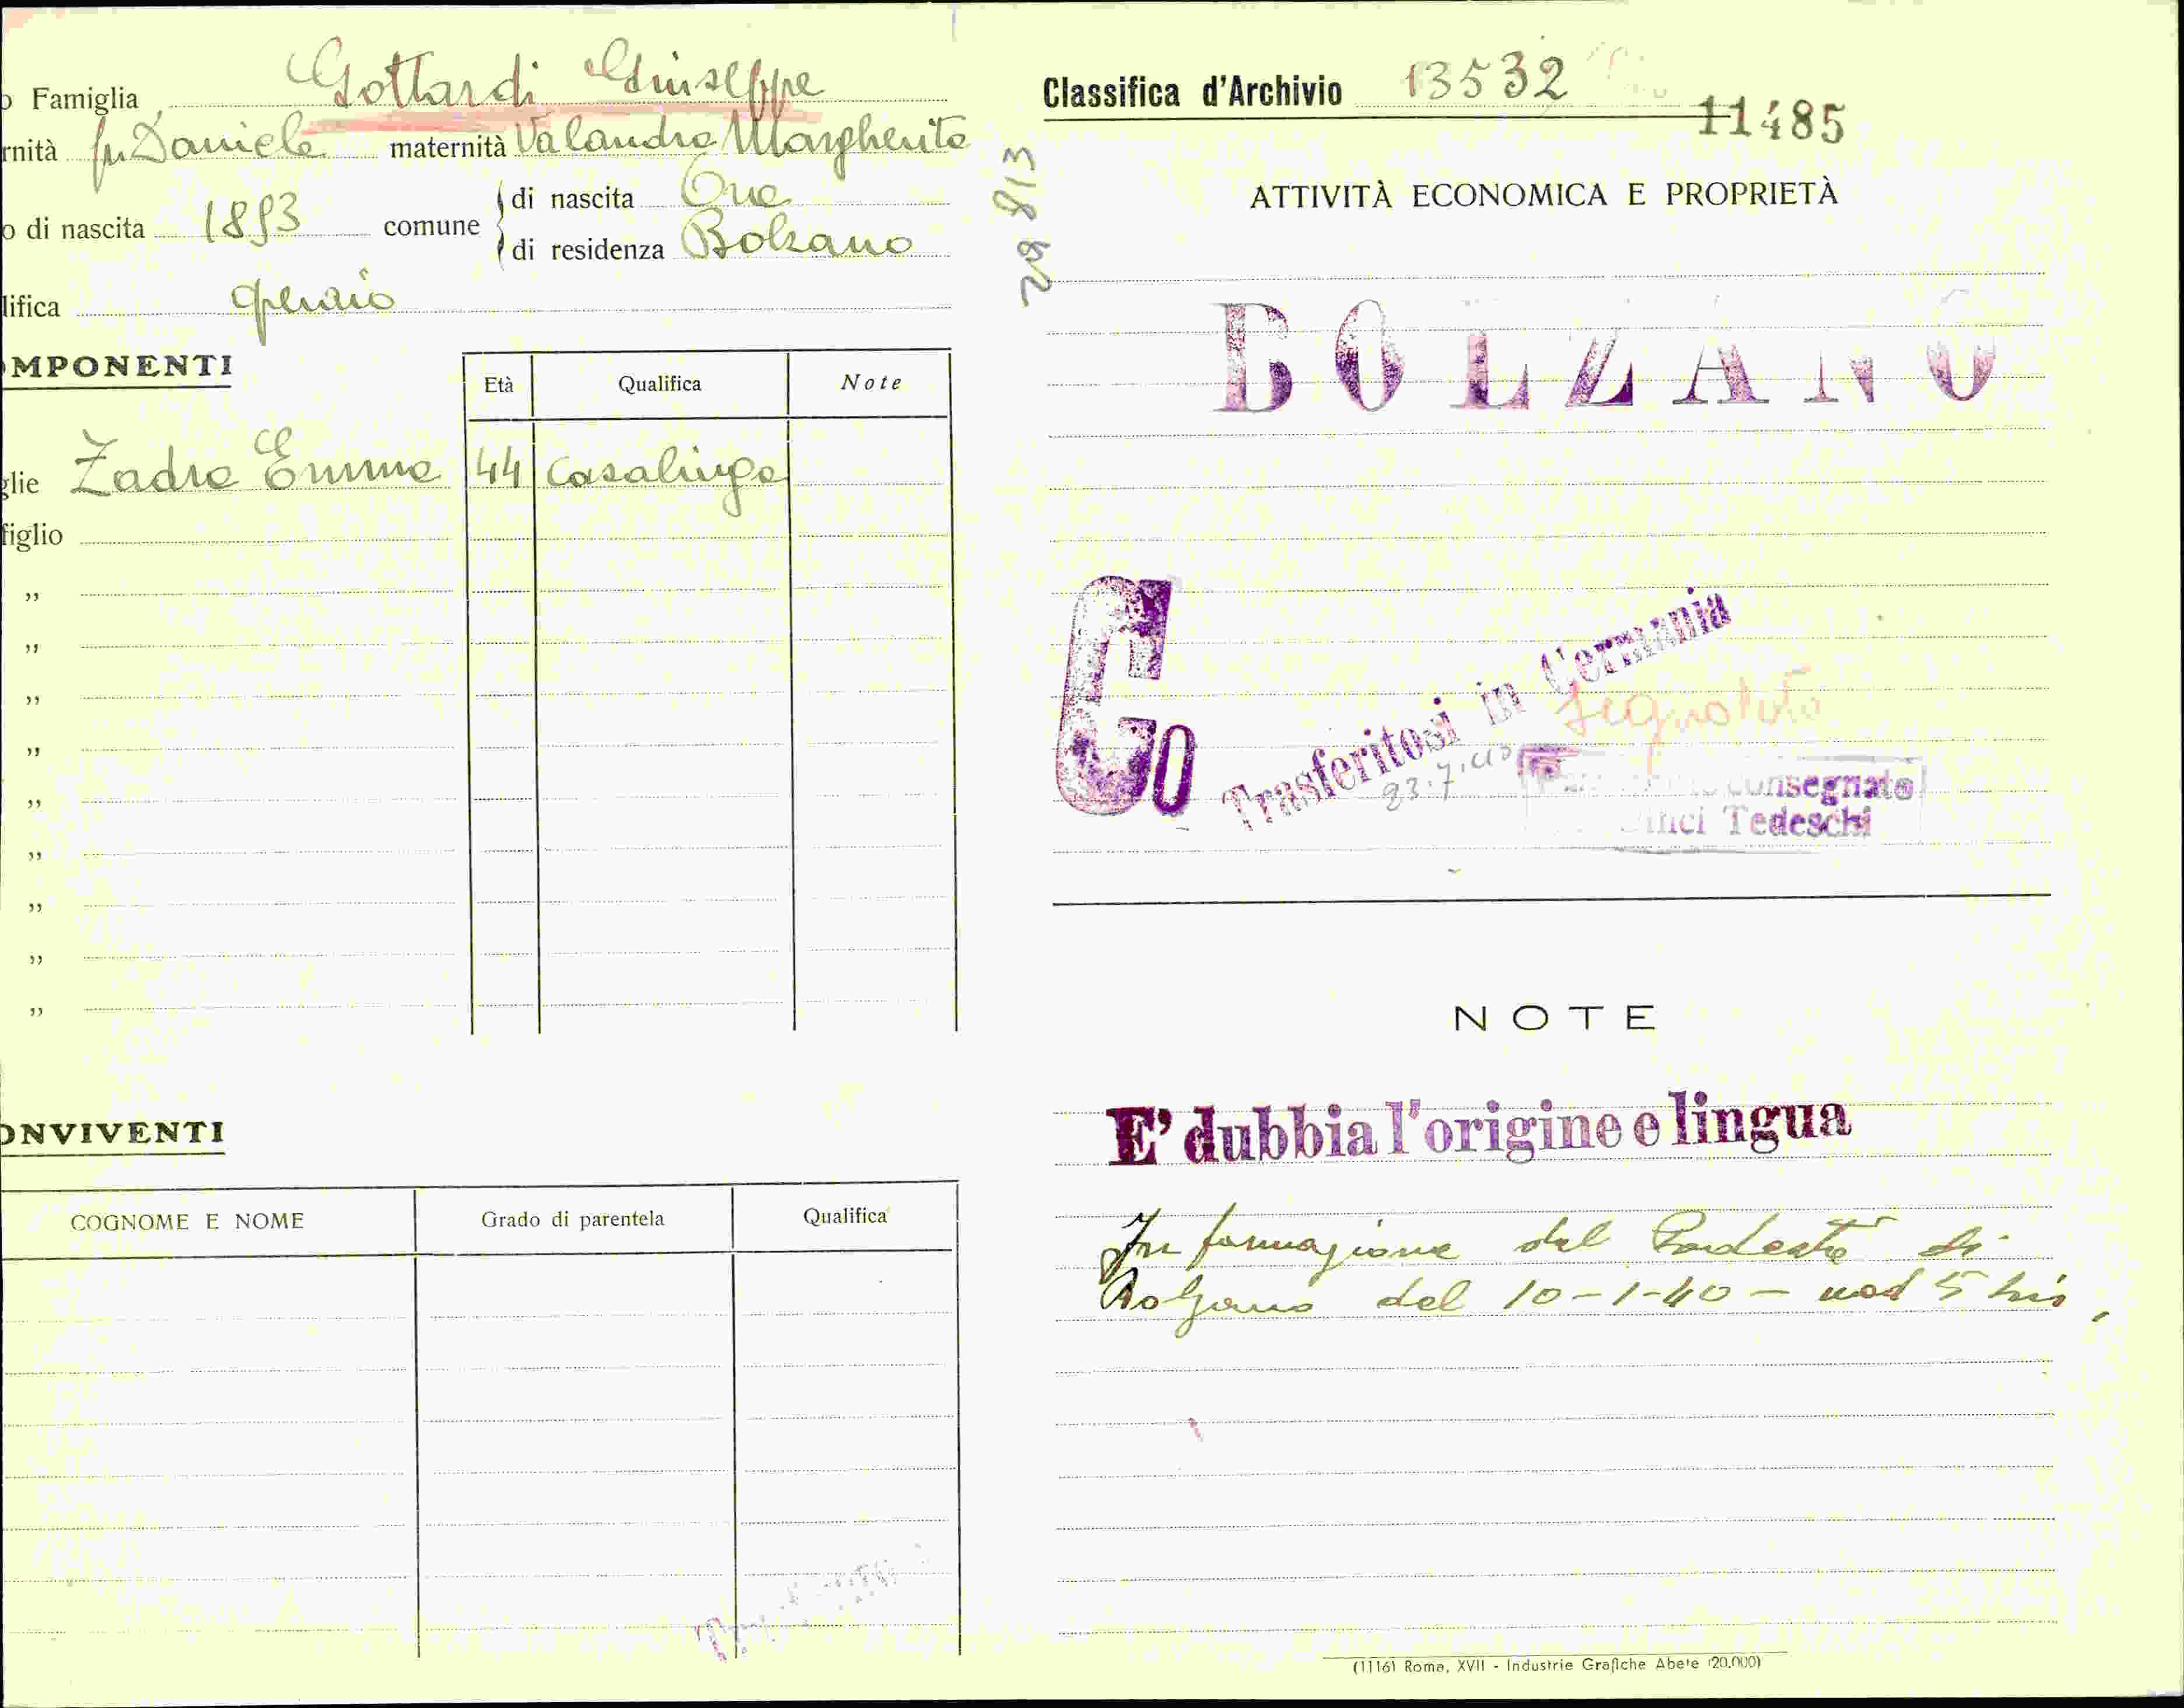 o Famiglia Gottardi Giuseppe
rnità fu Daniele maternità Valandro Margherita
o di nascita 1893 comune di nascita
di residenza Bolzano
lifica operaio
OMPONENTI
Età Qualifica Note
glie Zadra Emma 44 casalinga
figlio
,,
,,
,,
,,
,,
,,
,,
,,
,,
ONVIVENTI
COGNOME E NOME Grado di parentela Qualifica
Classifica d'Archivio 13532
11485
29813
ATTIVITÀ ECONOMICA E PROPRIETÀ
BOLZANO
G
O
Trasferitosi in Germania
23.7.40
Segnalato
consegnato
Tedeschi
NOTE
E' dubbia l'origine e lingua
Informazione del Podestà di
Bolzano del 10-1-40 - mod 5 bis
(1116) Roma, XVII - Industrie Grafiche Abete (20.000)